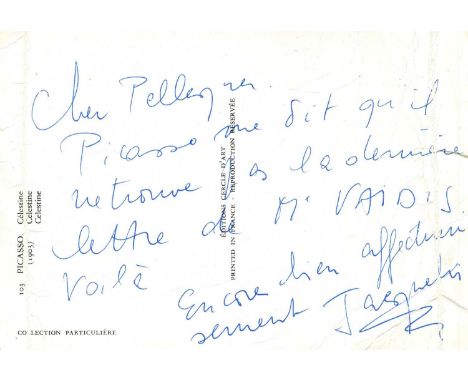 Cher
Picasso me dit qu'il
ne trouve pas la dernière
lettre de Mr VAIDIS
Voilà
Encore bien affectueu
sement Jacqueline
103 PICASSO Célestine
(1903) Celestine
Celestine
EDITIONS CERCLE D'ART
PRINTED IN FRANCE - REPRODUCTION RÉSERVÉE
COLLECTION PARTICULIÈRE